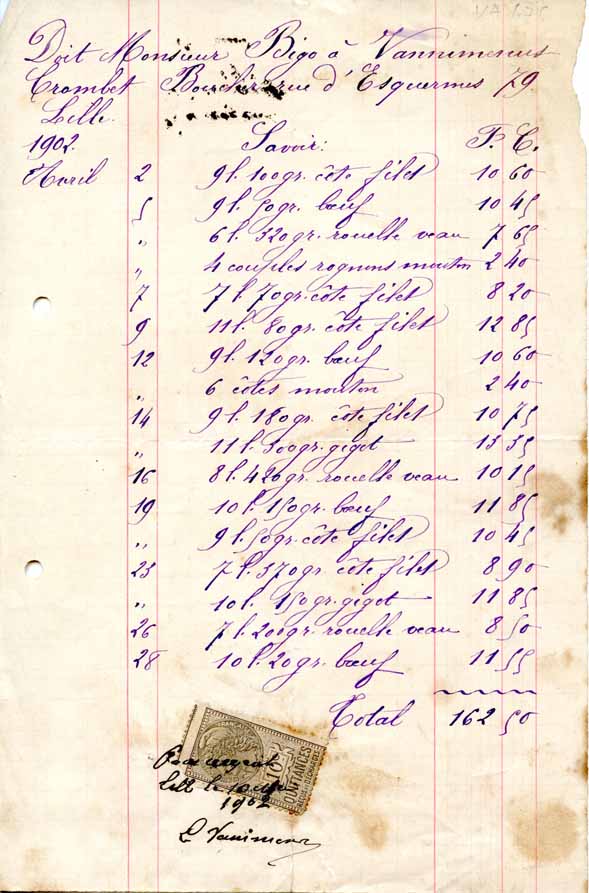 Doit Monsieur Bigo à Vannimenus
Crombet Boucher rue d'Esquermes 79.
Lille.
1902. Savoir: F. C.
Avril 2 9 l. 100 gr. côte filet 10 60
5 9 l. 50 gr. bœuf 10 45
" 6 l. 320 gr. rouelle veau 7 65
" 4 couples rognons mouton 2 40
7 7 l. 70 gr. côte filet 8 20
9 11 l. 80 gr. côte filet 12 85
12 9 l. 120 gr. bœuf 10 60
" 6 côtes mouton 2 40
14 9 l. 180 gr. côte filet 10 75
" 11 l. 300 gr. gigot 13 35
16 8 l. 420 gr. rouelle veau 10 15
19 10 l. 150 gr. bœuf 11 85
" 9 l. 50 gr. côte filet 10 45
23 7 l. 370 gr. côte filet 8 90
" 10 l. 150 gr. gigot 11 85
26 7 l. 200 gr. rouelle veau 8 50
28 10 l. 20 gr. bœuf 11 55
Total 162 50
10
QUITTANCES
Pour acquit
Lille le 10
1902
L Vannimenus